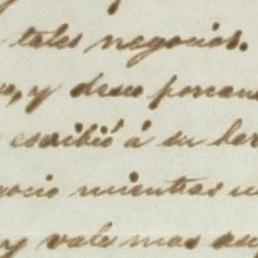 tales negocios.
y desee
escribió á su her
ocio mientras
y vale mas